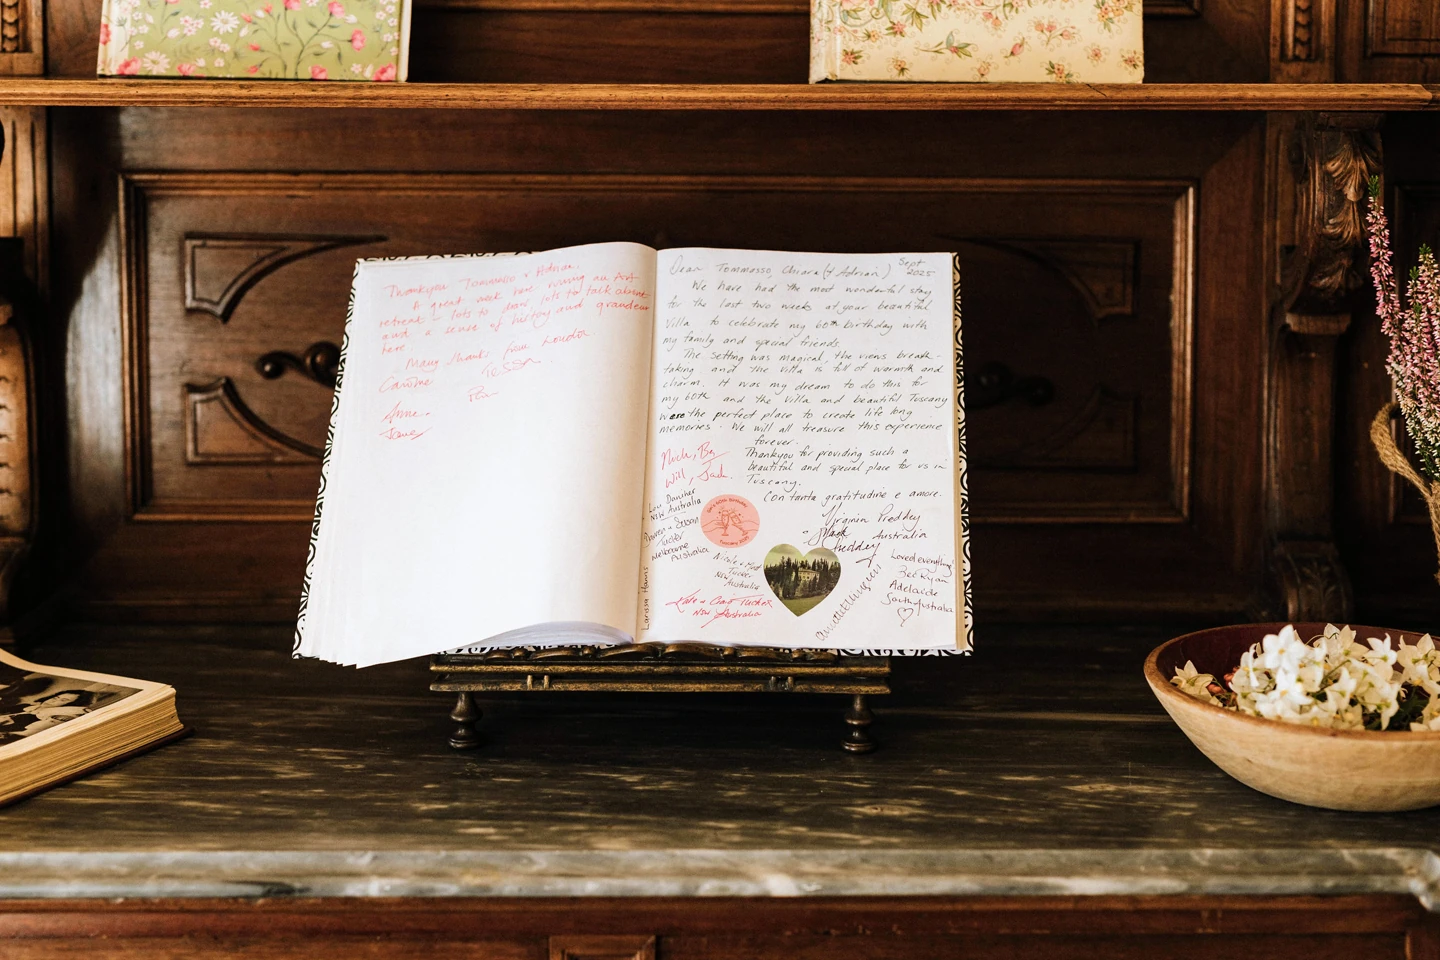 Thankyou Tommaso + Adrian.
A great week here running an Art
retreat – lots to draw, lots to talk about
and a sense of history and grandeur
here.
Many thanks from London
Caroline Tessa
Anne.
Dear Tommasso Chiara (& Adrian) Sept
2025
We have had the most wonderful stay
for the last two weeks at your beautiful
Villa to celebrate my 60th birthday with
my family and special friends.
The setting was magical, the views breath-
taking and the Villa is full of warmth and
charm. It was my dream to do this for
my 60th and the Villa and beautiful Tuscany
were the perfect place to create life long
memories. We will all treasure this experience
forever.
Thankyou for providing such a
beautiful and special place for us in
Tuscany.
Con tanta gratitudine e amore.
Virginia Preddey
Mark Preddey
Australia
Nick, Be
Will, Jack.
Lou Daniher
NSW Australia
Darren + Susan
Tucker
Melbourne
Australia
Tuscany 2025
Nicole +
Tucker
NSW
Australia
Kate + Cam Tucker
NSW Australia
Larissa Harris
Loved everything!
Bec Ryan
Adelaide
South Australia